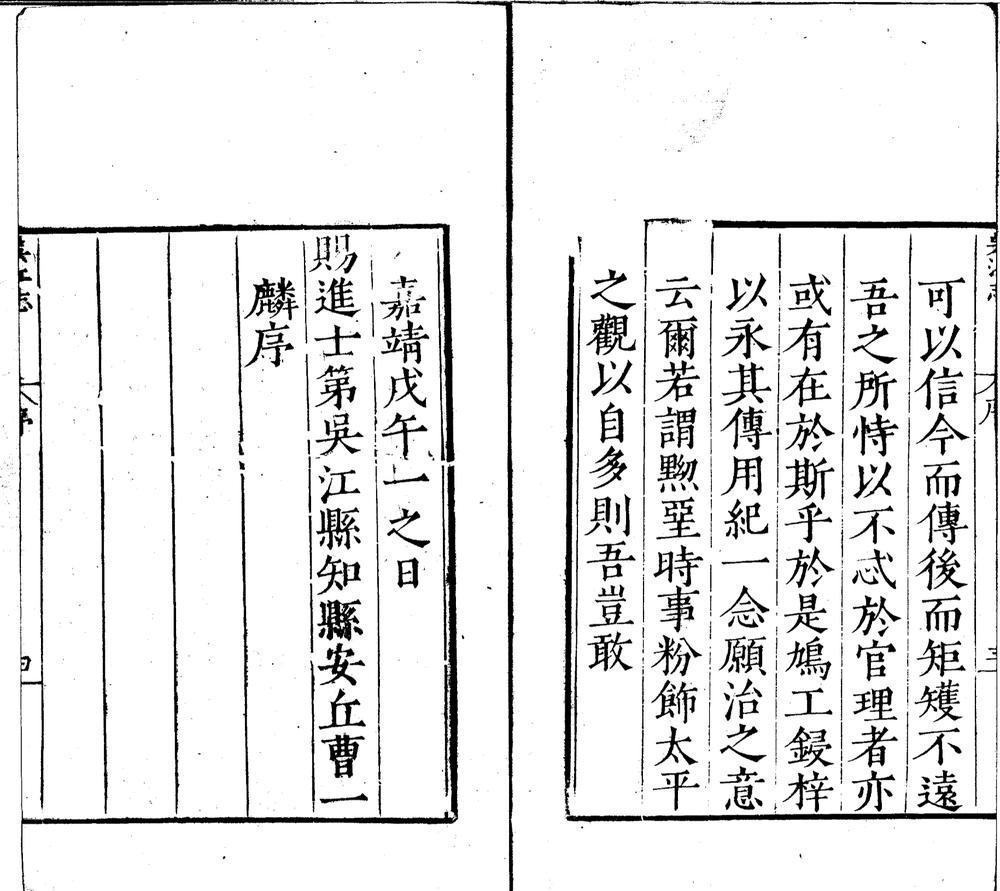 可以信今而傳後而矩矱不遠
吾之所恃以不忒於官理者亦
或有在於斯乎於是鳩工鋟梓
以永其傳用紀一念願治之意
云爾若謂黝堊時事粉飾太平
之觀以自多則吾豈敢
嘉靖戊午一之日
賜進士第吳江縣知縣安丘曹一
麟序